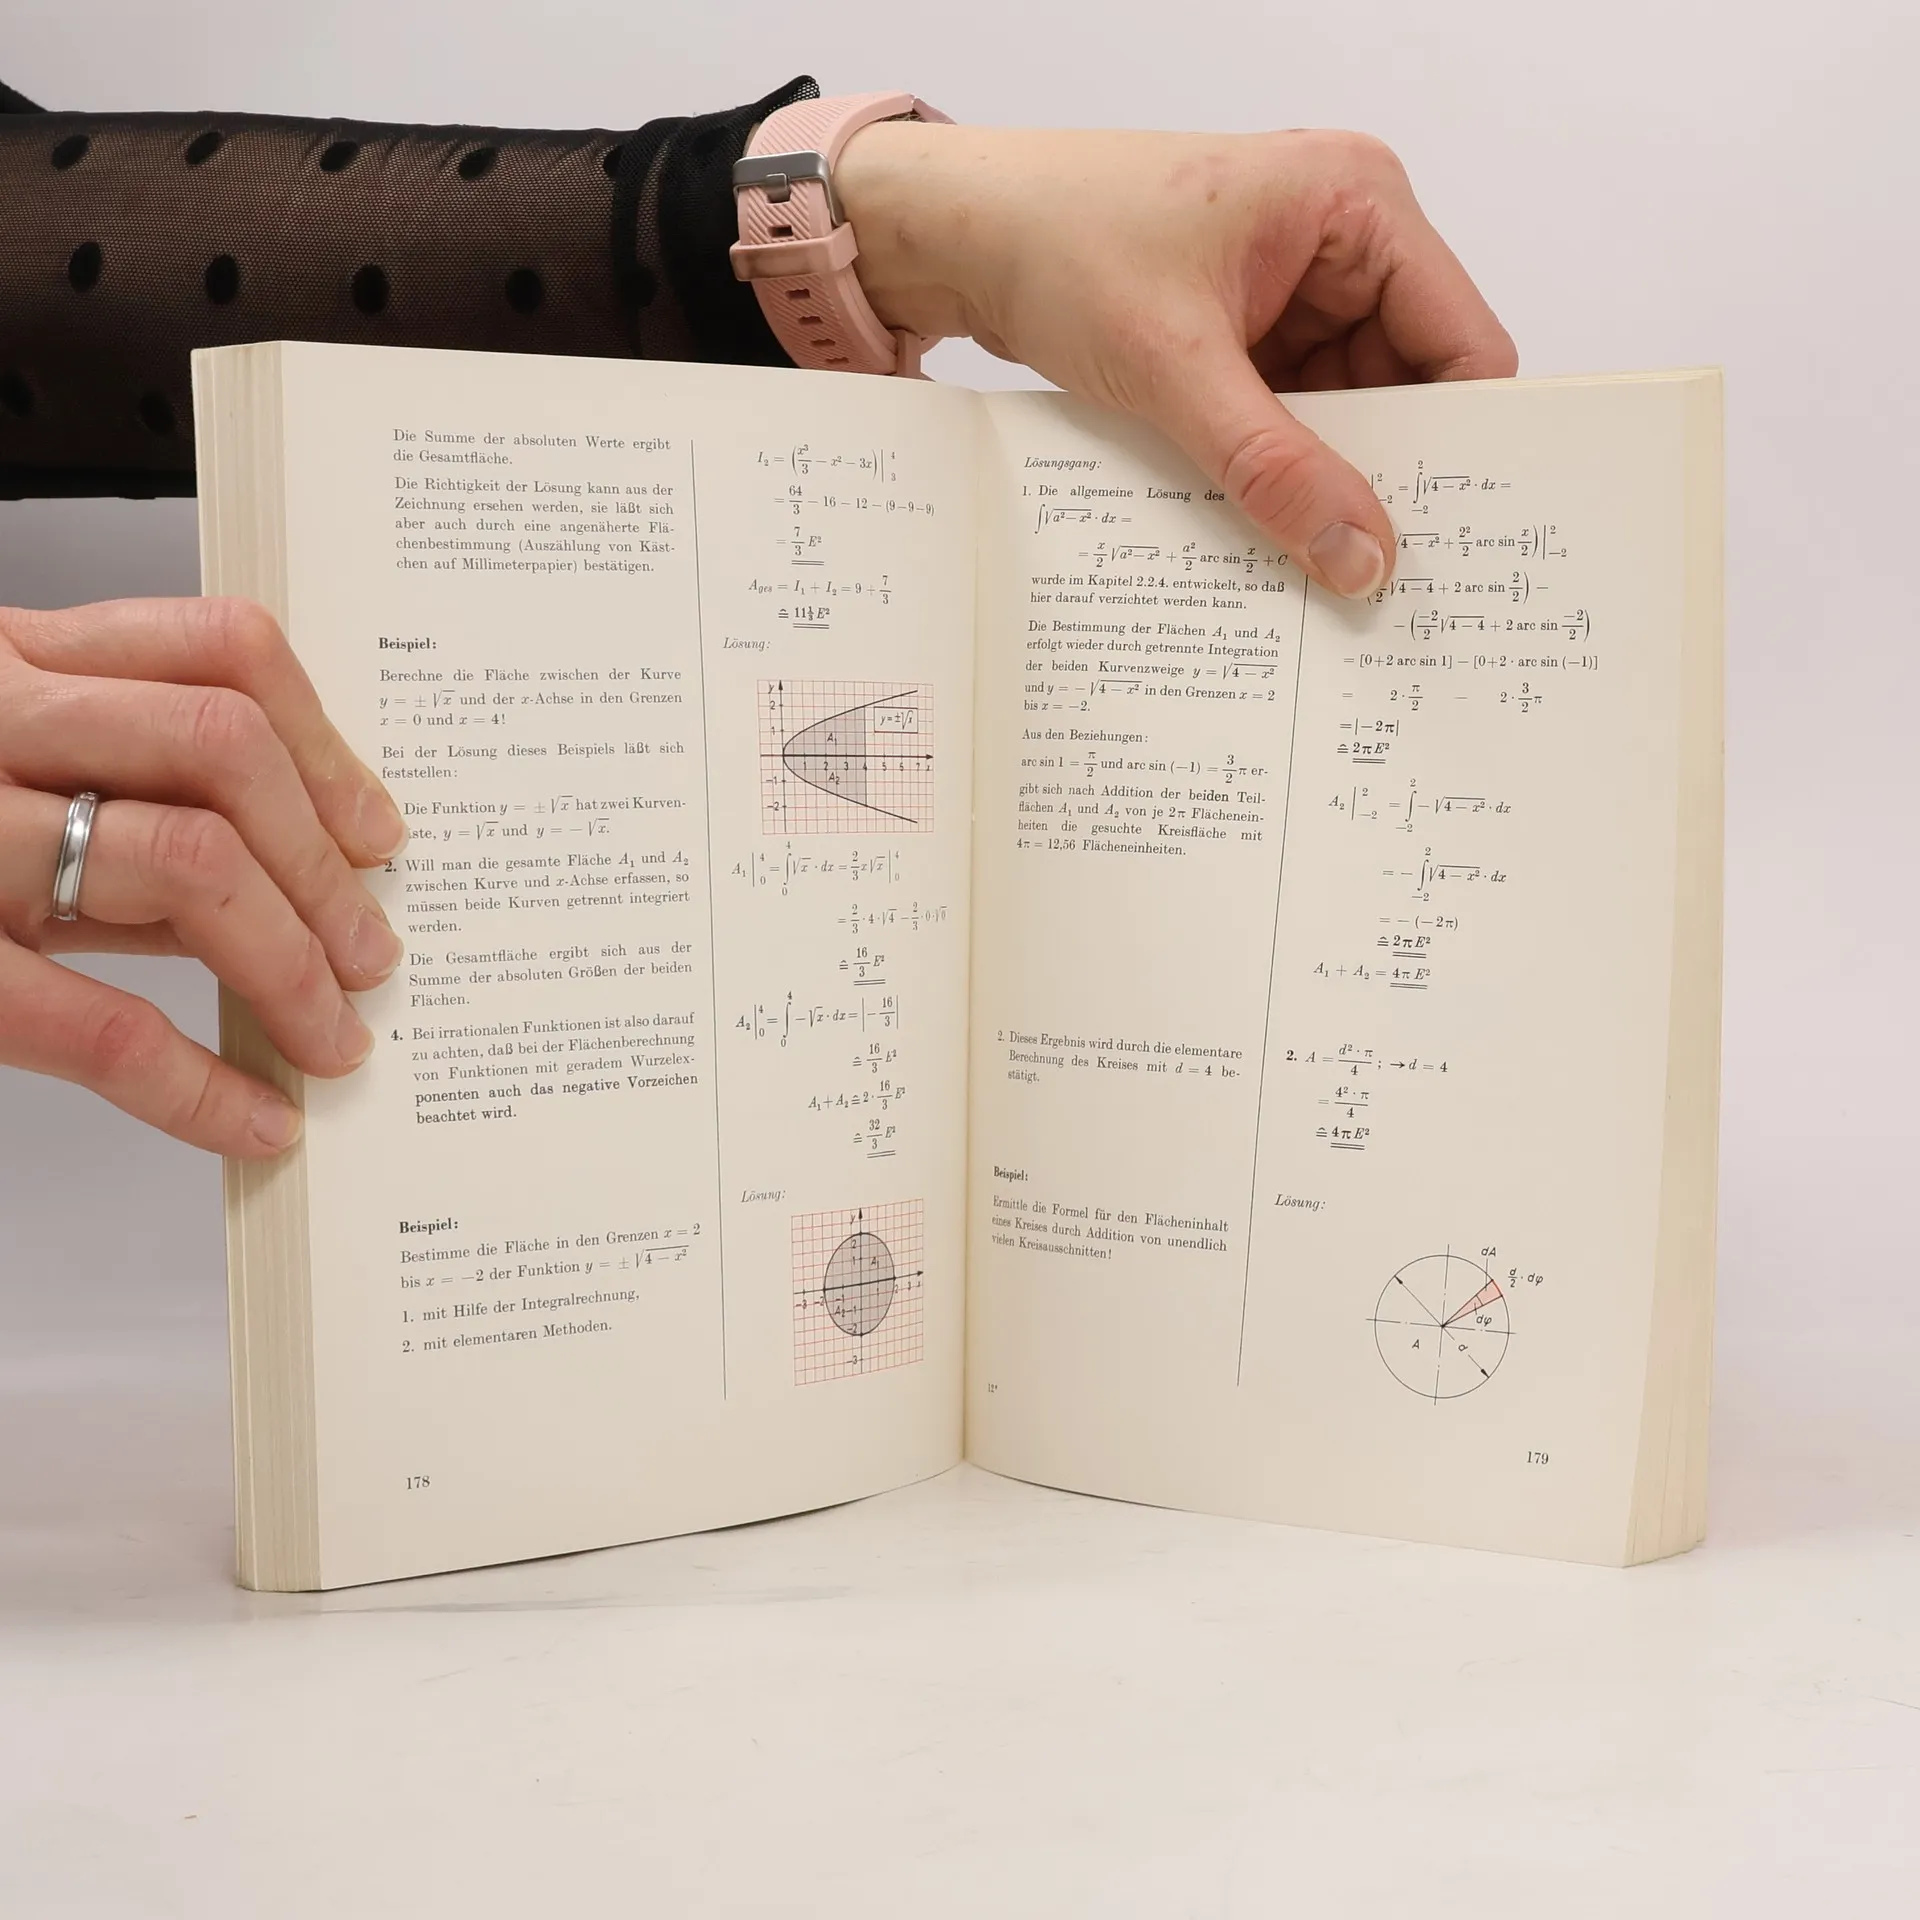 Die Summe der absoluten Werte ergibt
die Gesamtfläche.
Die Richtigkeit der Lösung kann aus der
Zeichnung ersehen werden, sie läßt sich
aber auch durch eine angenäherte Flä-
chenbestimmung (Auszählung von Käst-
chen auf Millimeterpapier) bestätigen.
I₂ = (x³/3 − x² − 3x) |₃⁴
= 64/3 − 16 − 12 − (9−9−9)
= 7/3 E²
A_ges = I₁ + I₂ = 9 + 7/3
≙ 11⅓ E²
Beispiel:
Berechne die Fläche zwischen der Kurve
y = ± √x und der x-Achse in den Grenzen
x = 0 und x = 4!
Bei der Lösung dieses Beispiels läßt sich
feststellen:
Die Funktion y = ± √x hat zwei Kurven-
äste, y = √x und y = − √x.
2. Will man die gesamte Fläche A₁ und A₂
zwischen Kurve und x-Achse erfassen, so
müssen beide Kurven getrennt integriert
werden.
Die Gesamtfläche ergibt sich aus der
Summe der absoluten Größen der beiden
Flächen.
4. Bei irrationalen Funktionen ist also darauf
zu achten, daß bei der Flächenberechnung
von Funktionen mit geradem Wurzelex-
ponenten auch das negative Vorzeichen
beachtet wird.
Lösung:
y
2
1
−1
−2
1 2 3 4 5 6 7 x
y=±√x
A₁
A₂
A₁ |₀⁴ = ∫₀⁴ √x · dx = 2/3 x √x |₀⁴
= 2/3 · 4 · √4 − 2/3 · 0 · √0
≙ 16/3 E²
A₂ |₀⁴ = ∫₀⁴ − √x · dx = |− 16/3|
≙ 16/3 E²
A₁ + A₂ ≙ 2 · 16/3 E²
≙ 32/3 E²
Beispiel:
Bestimme die Fläche in den Grenzen x = 2
bis x = −2 der Funktion y = ± √(4 − x²)
1. mit Hilfe der Integralrechnung,
2. mit elementaren Methoden.
Lösung:
y
2
1
−3 −2 −1 1 2 3 x
A₁
A₂ −1
−2
−3
178
Lösungsgang:
1. Die allgemeine Lösung des
∫√(a² − x²) · dx =
= x/2 √(a² − x²) + a²/2 arc sin x/2 + C
wurde im Kapitel 2.2.4. entwickelt, so daß
hier darauf verzichtet werden kann.
Die Bestimmung der Flächen A₁ und A₂
erfolgt wieder durch getrennte Integration
der beiden Kurvenzweige y = √(4 − x²)
und y = − √(4 − x²) in den Grenzen x = 2
bis x = −2.
Aus den Beziehungen:
arc sin 1 = π/2 und arc sin (−1) = 3/2 π er-
gibt sich nach Addition der beiden Teil-
flächen A₁ und A₂ von je 2π Flächenein-
heiten die gesuchte Kreisfläche mit
4π = 12,56 Flächeneinheiten.
2. Dieses Ergebnis wird durch die elementare
Berechnung des Kreises mit d = 4 be-
stätigt.
|₋₂² = ∫₋₂² √(4 − x²) · dx =
√(4 − x²) + 2²/2 arc sin x/2) |₋₂²
(2/2 √(4 − 4) + 2 arc sin 2/2) −
− (−2/2 √(4 − 4) + 2 arc sin −2/2)
= [0+2 arc sin 1] − [0+2 · arc sin (−1)]
= 2 · π/2 − 2 · 3/2 π
= |−2π|
≙ 2π E²
A₂ |₋₂² = ∫₋₂² − √(4 − x²) · dx
= − ∫₋₂² √(4 − x²) · dx
= − (−2π)
≙ 2π E²
A₁ + A₂ = 4π E²
2. A = d² · π/4 ; → d = 4
= 4² · π/4
≙ 4π E²
Beispiel:
Ermittle die Formel für den Flächeninhalt
eines Kreises durch Addition von unendlich
vielen Kreisausschnitten!
Lösung:
dA
d/2 · dφ
dφ
A
d
12*
179